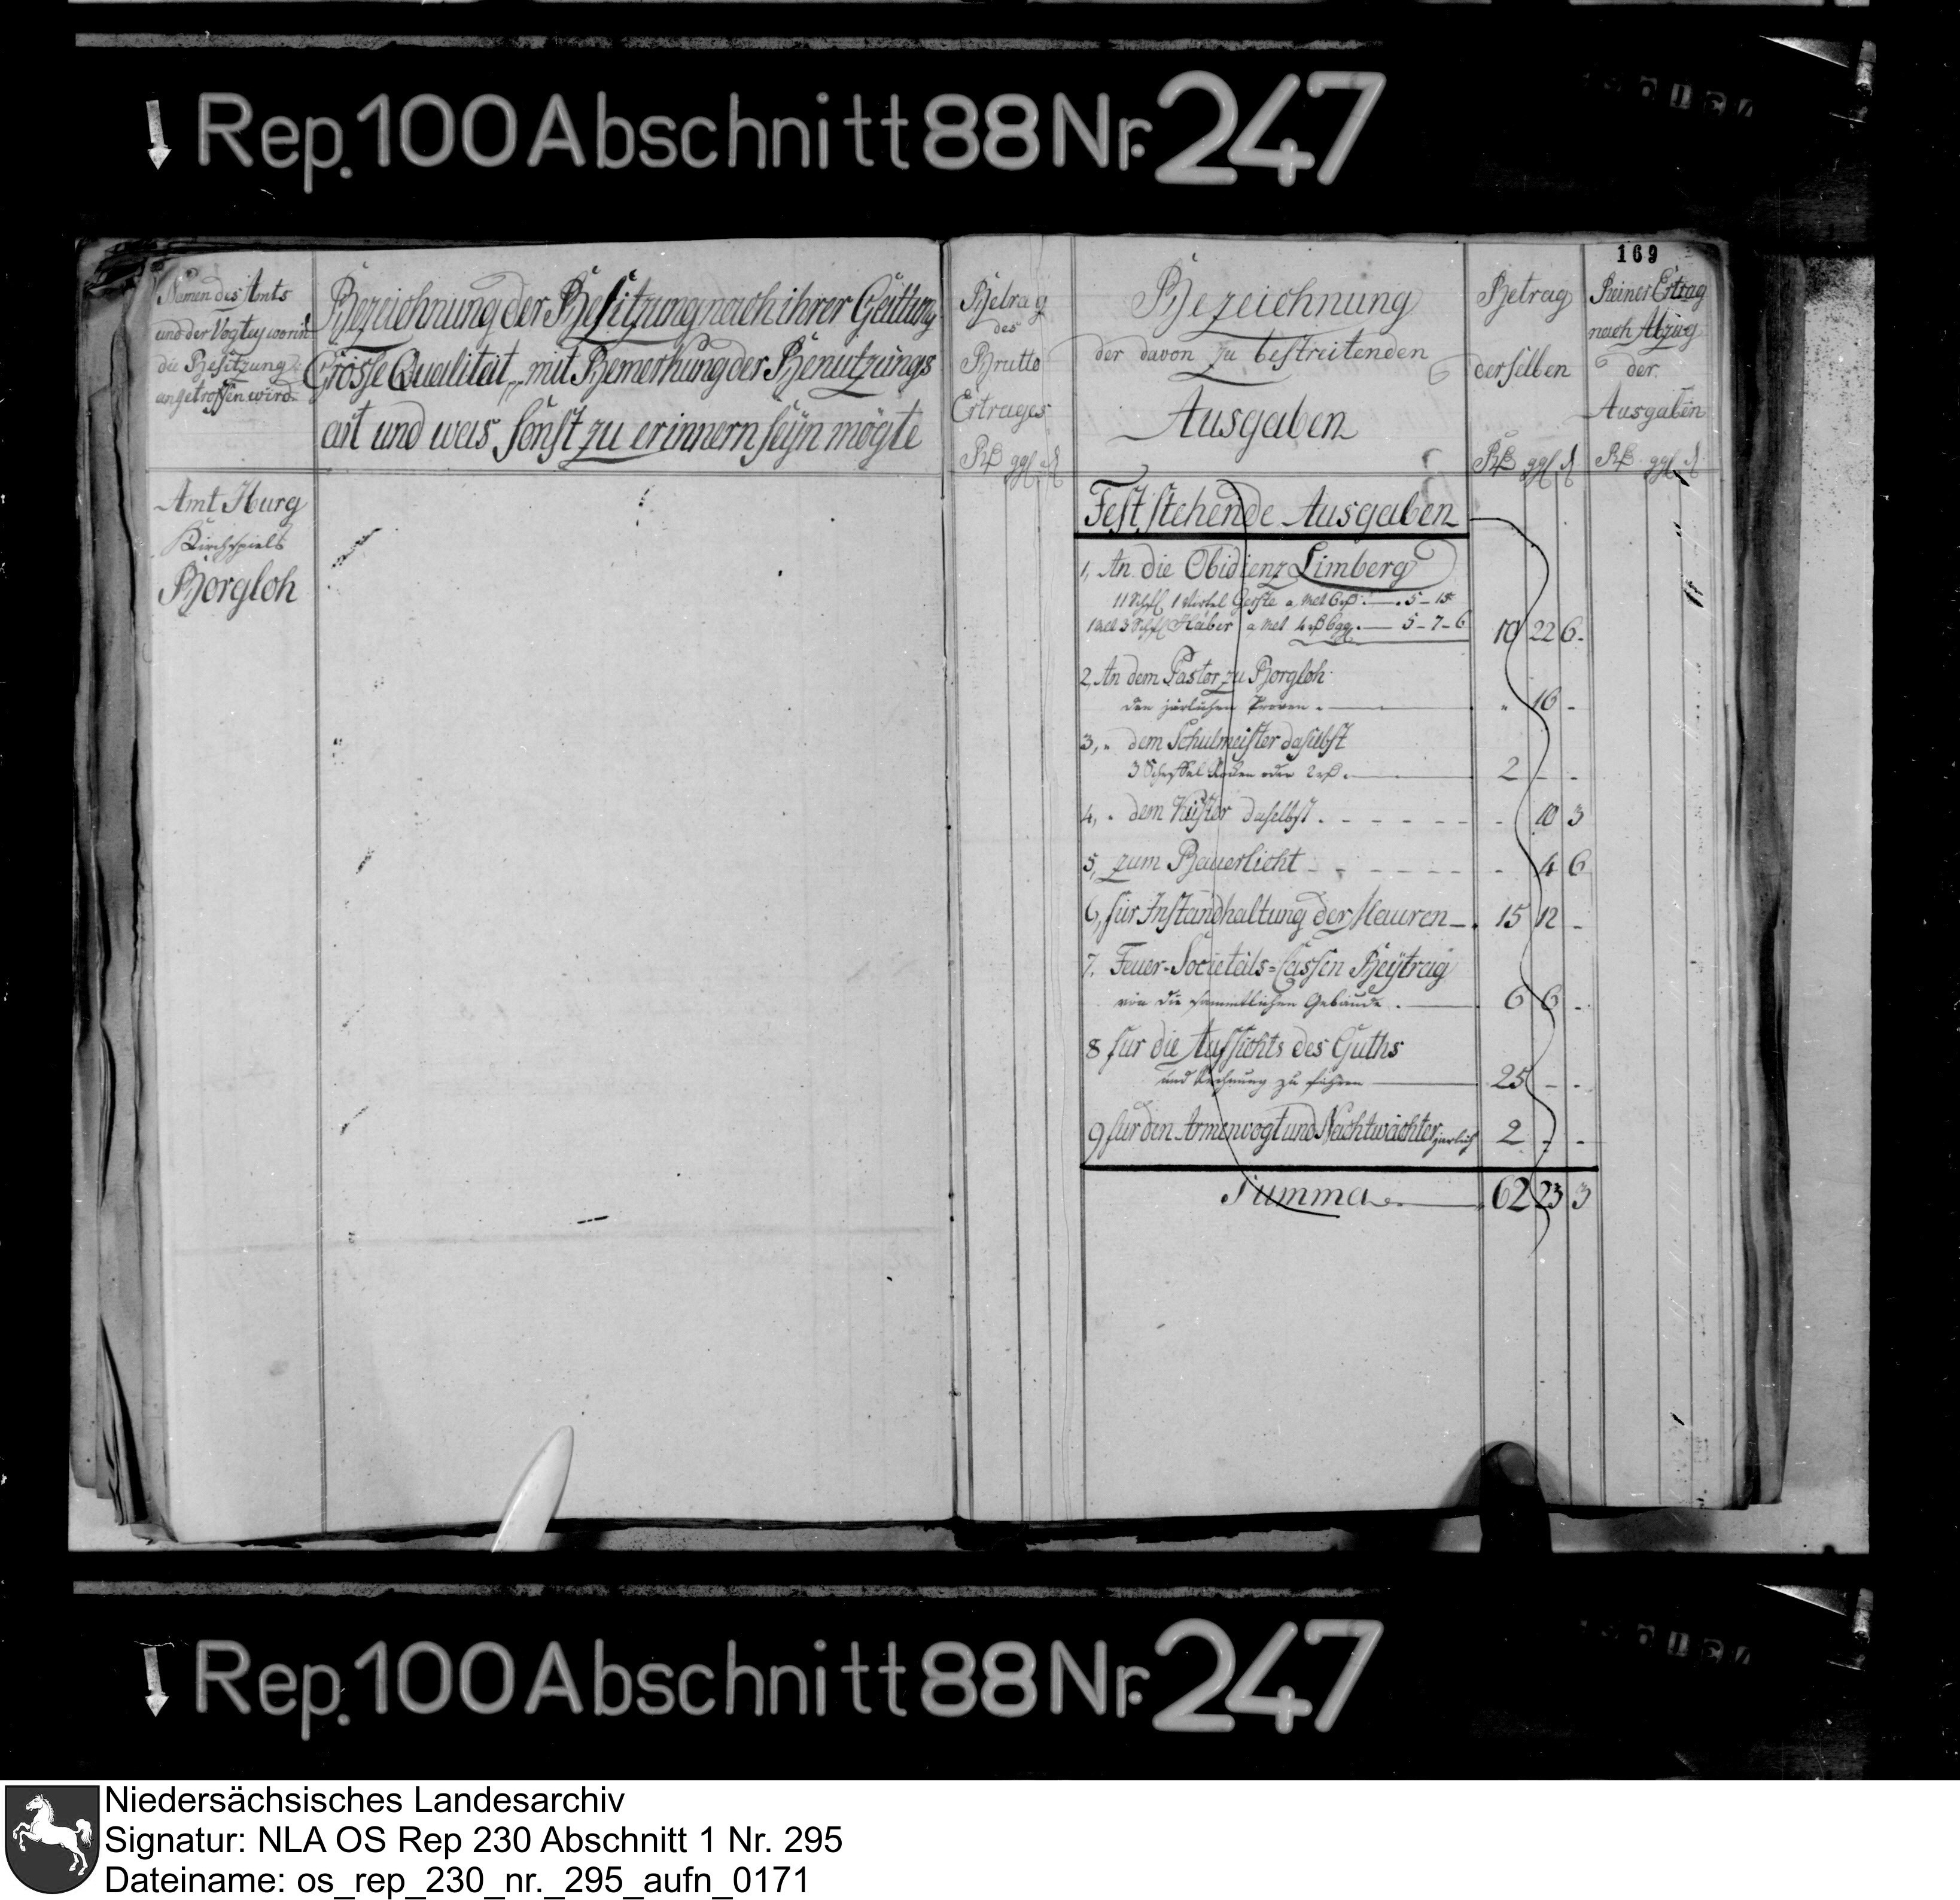 Rep. 100 Abschnitt 88 Nr. 247
169
Namen des Amts
und der Vogtey worin
die Besitzung
angetroffen wird
Bezeichnung der Besitzung nach ihrer Gattung
Grösse Qualität, mit Bemerkung der Benutzungs
art und was sonst zu erinnern seyn mögte
Betrag
des
Brutto
Ertrages
Rß ggl ₰
Bezeichnung
der davon zu bestreitenden
Ausgaben
Betrag
derselben
Rß ggl ₰
Reiner Ertrag
nach Abzug
der
Ausgaben
Rß ggl ₰
Amt Iburg
Kirchspiels
Borgloh
Fest stehende Ausgaben
1, An die Obidienz Limberg
11 Schfl 1 Viertel Gerste a Mlt 6 rß. 5 - 15
1 Mlt 3 Schfl Haber a Mlt 4 rß 6 gg. 5 - 7 - 6 10 22 6.
2, An dem Pastor zu Borgloh
den järlichen Proven . " 16 -
3, " dem Schulmeister daselbst
3 Scheffel Rocken oder 2 rß. 2 - -
4, " dem Küster daselbst . - 10 3
5, zum Bauerlicht - 4 6
6, für Instandhaltung der Mauren 15 12 -
7. Feuer-Societäts=Cassen Beÿtrag
von die sammtlichen Gebäude . 6 6 -
8 für die Aufsichts des Guths
und Rechnung zu führen 25 - -
9 für den Armenvogt und Nachtwächter jarlich 2 - -
Summa 62 23 3
Rep. 100 Abschnitt 88 Nr. 247
Niedersächsisches Landesarchiv
Signatur: NLA OS Rep 230 Abschnitt 1 Nr. 295
Dateiname: os_rep_230_nr._295_aufn_0171